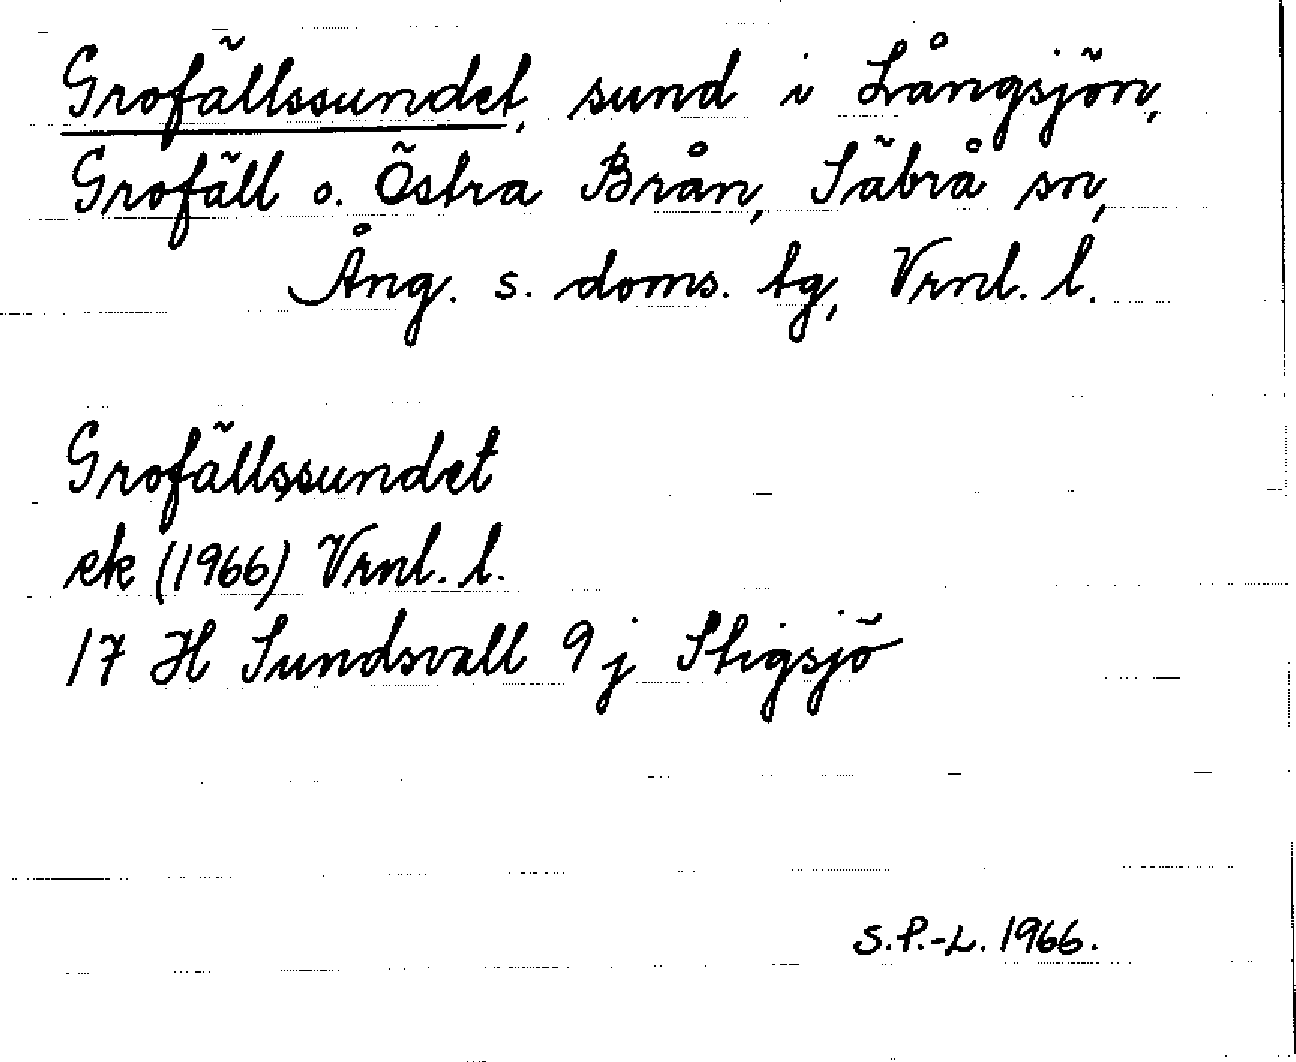 Grofällssundet, sund i Långsjön,
Grofäll o. Östra Brån, Säbrå sn,
Ång. s. doms. tg, Vrnl. l.
Grofällssundet
ek (1966) Vrnl. l.
17 H Sundsvall 9 j Stigsjö
S.P.-L. 1966.